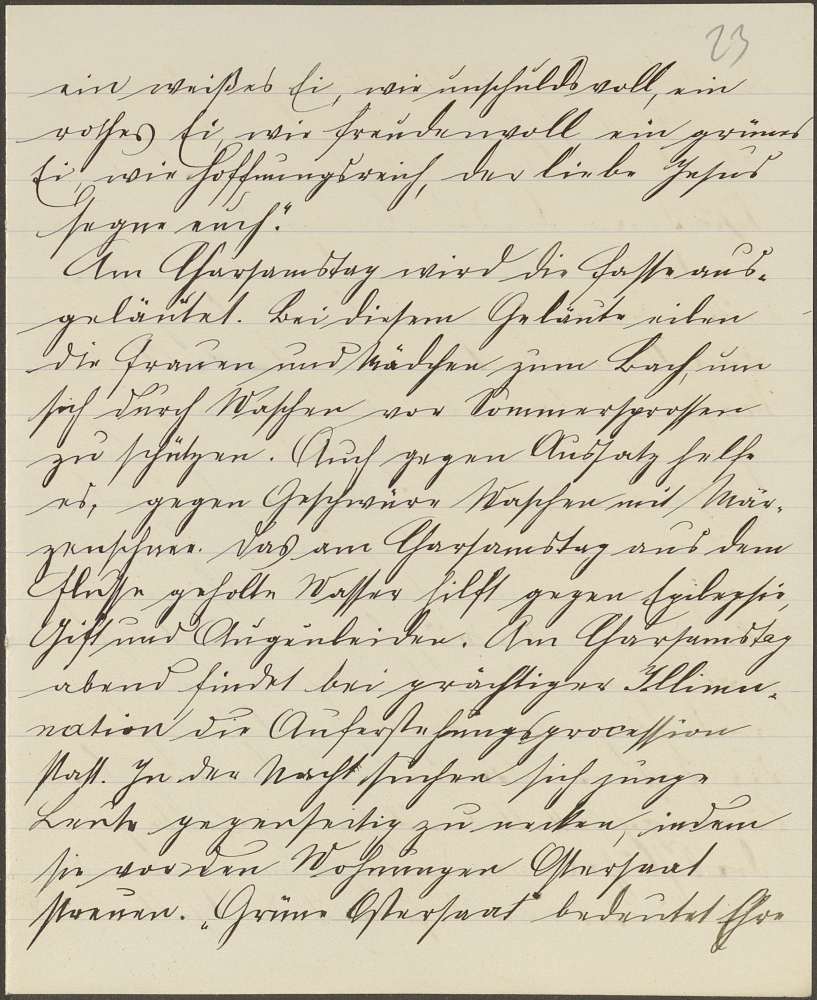 23
ein weißes Ei, wie unschuldsvoll, ein
rothes Ei, wie freudenvoll, ein grünes
Ei, wie hoffnungsreich, der liebe Jesus
segne euch."
Am Charsamstag wird die Faste aus-
geläutet. Bei diesem Geläute eilen
die Frauen und Mädchen zum Bach, um
sich durch Waschen vor Sommersprossen
zu schützen. Auch gegen Aussatz helfe
es, gegen Geschwüre Waschen mit Mär-
zenschnee. Das am Charsamstag aus dem
Flusse geholte Wasser hilft gegen Epilepsie,
Gift und Augenleiden. Am Charsamstag
abend findet bei prächtiger Illumi-
nation die Auferstehungsprocession
statt. In der Nacht suchen sich junge
Leute gegenseitig zu necken, indem
sie vor den Wohnungen Ostersaat
streuen. „Grüne Ostersaat" bedeutet Ehre